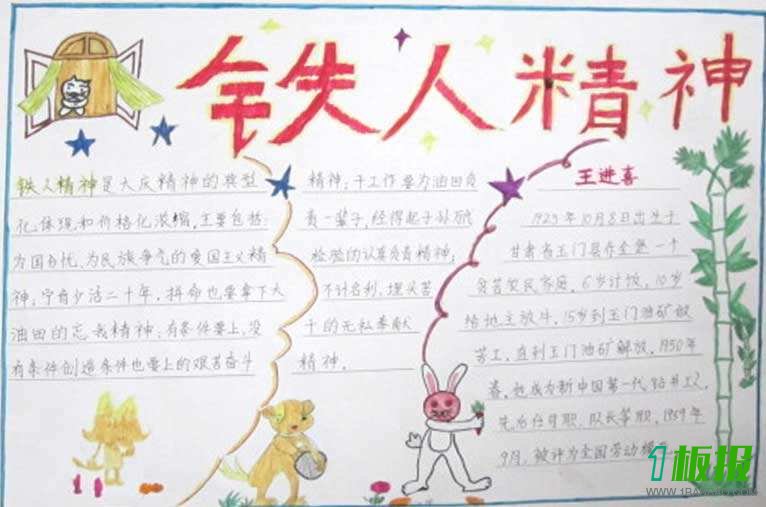 铁人精神
铁人精神是大庆精神的典型
化体现和价格化浓缩,主要包括:
为国分忧、为民族争气的爱国主义精
神;宁肯少活二十年,拼命也要拿下大
油田的忘我精神;有条件要上,没
有条件创造条件也要上的艰苦奋斗
精神;干工作要为油田负
责一辈子,经得起子孙
检验的认真负责精神;
不计名利,埋头苦
干的无私奉献
精神。
王进喜
1923年10月8日出生于
甘肃省玉门县赤金堡一个
贫苦农民家庭。6岁讨饭,10岁
给地主放牛,15岁到玉门油矿做
苦工,直到玉门油矿解放。1950年
春,他成为新中国第一代钻井工人,
先后任司职、队长等职,1959年
9月,被评为全国劳动模
1板报
WWW.1BANBAO.COM